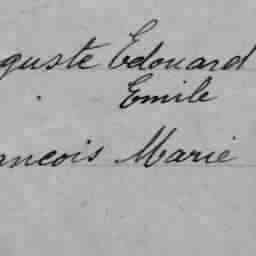 guste Edouard
Emile
ancois Marie